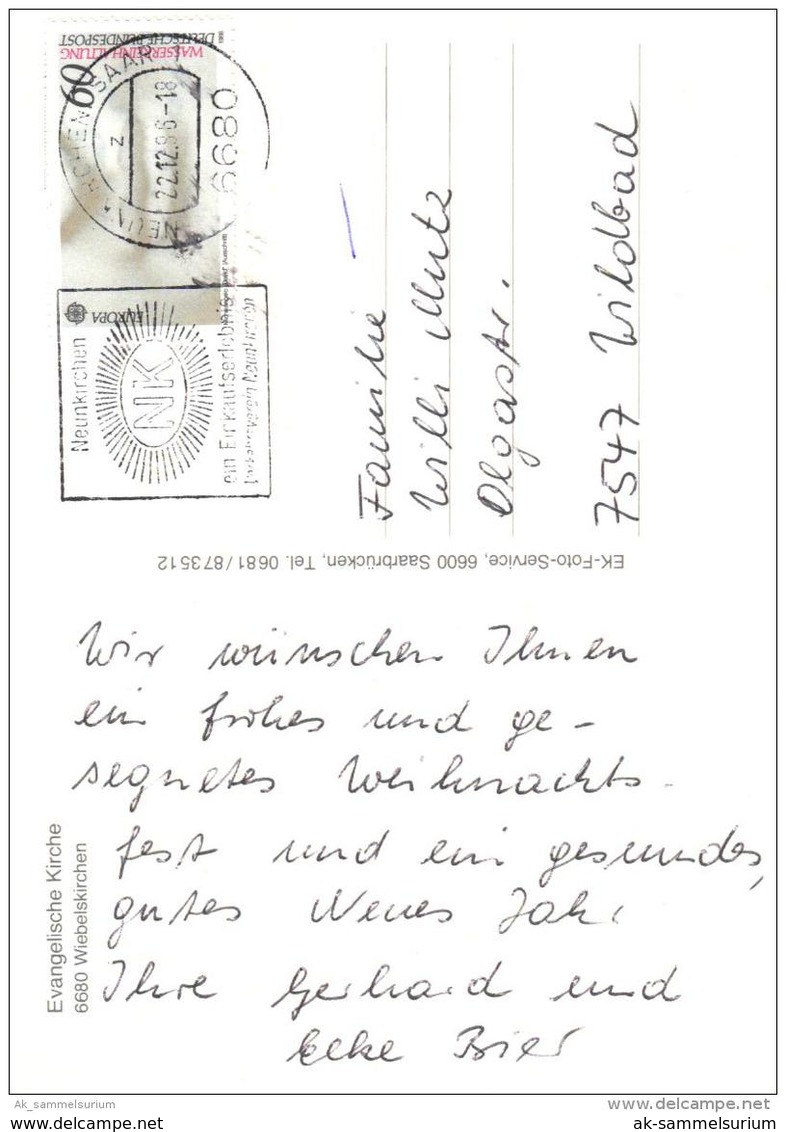 60
WASSERREINHALTUNG
DEUTSCHE BUNDESPOST
EUROPA
NEUNKIRCHEN, SAAR 1
z
22.12.86-18
6680
Neunkirchen
NK
ein Einkaufserlebnis
Verkehrsverein Neunkirchen
Familie
Willi Mutz
Olgastr.
7547 Wildbad
EK-Foto-Service, 6600 Saarbrücken, Tel. 0681/873512
Wir wünschen Ihnen
ein frohes und ge-
segnetes Weihnachts-
fest und ein gesundes,
gutes Neues Jahr.
Ihre Gerhard und
Elke Bier
Evangelische Kirche
6680 Wiebelskirchen
Ak_sammelsurium
delcampe.net
ak-sammelsurium
ak-sammelsurium